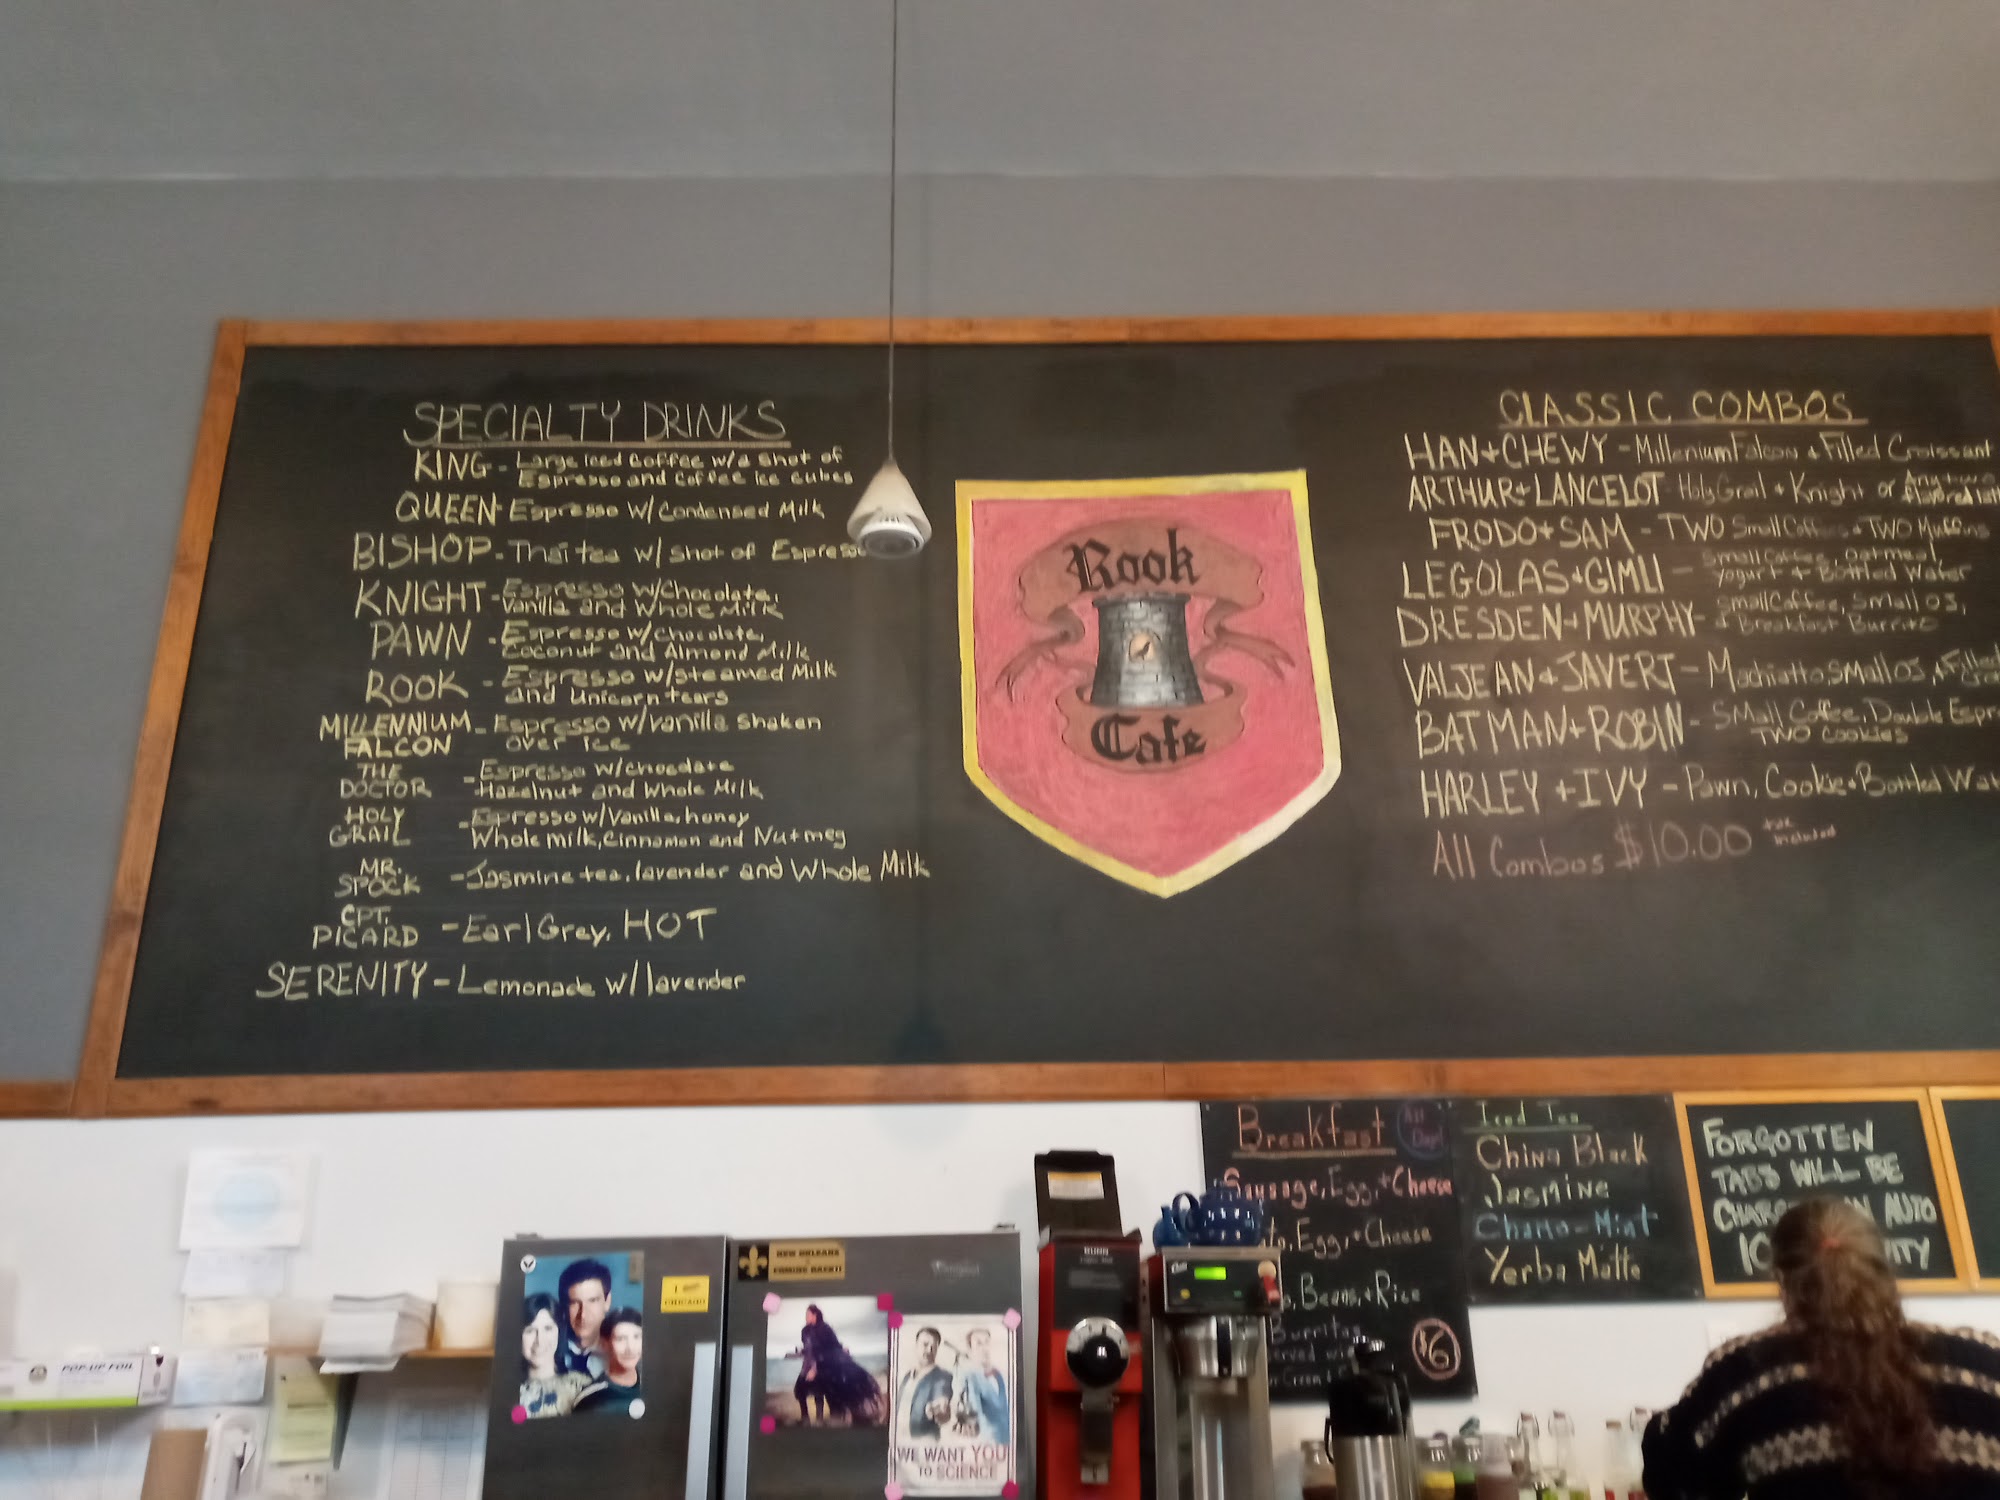 SPECIALTY DRINKS
KING - Large iced coffee w/a shot of
Espresso and coffee ice cubes
QUEEN - Espresso w/ Condensed Milk
BISHOP - Thai tea w/ shot of Espresso
KNIGHT - Espresso w/Chocolate,
Vanilla and Whole Milk
PAWN - Espresso w/Chocolate,
Coconut and Almond Milk
ROOK - Espresso w/steamed Milk
and Unicorn tears
MILLENNIUM FALCON - Espresso w/vanilla shaken
over ice
THE DOCTOR - Espresso w/chocolate
Hazelnut and Whole Milk
HOLY GRAIL - Espresso w/Vanilla, honey
Whole milk, Cinnamon and Nutmeg
MR. SPOCK - Jasmine tea, lavender and Whole Milk
CPT. PICARD - Earl Grey, HOT
SERENITY - Lemonade w/ lavender
Rook
Cafe
CLASSIC COMBOS
HAN + CHEWY - Millenium Falcon + Filled Croissant
ARTHUR + LANCELOT - Holy Grail + Knight or Any two
FRODO + SAM - TWO Small Coffees + TWO Muffins
LEGOLAS + GIMLI - Small coffee, oatmeal,
yogurt + Bottled Water
DRESDEN + MURPHY - Small Coffee, Small OJ,
+ Breakfast Burrito
VALJEAN + JAVERT - Machiatto, SMall OJ, + Filled
BATMAN + ROBIN - SMall Coffee, Double Espr
TWO Cookies
HARLEY + IVY - Pawn, Cookie + Bottled Wat
All Combos $10.00 tax
included
Breakfast All
Day!
Sausage, Egg, + Cheese
Egg, + Cheese
Beans, + Rice
Burritos
$6
Iced Tea
China Black
Jasmine
Yerba Matte
FORGOTTEN
TABS WILL BE
AUTO
POP-UP FOIL
NEW ORLEANS
COMING BACK!!
I
CHICAGO
BUNN
WE WANT YOU
TO SCIENCE